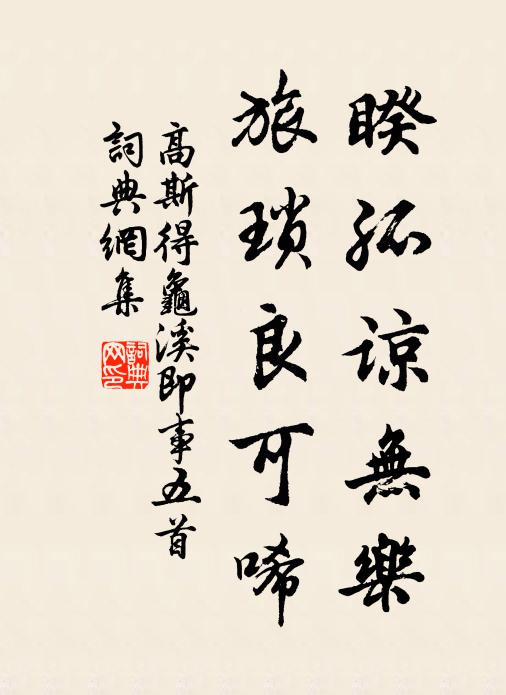 睽孤諒無樂
旅瑣良可唏
高斯得龜溪即事五首
詞典網集
詞典
网印